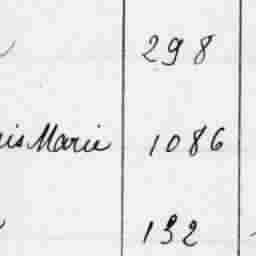 298
is Marie 1086
132